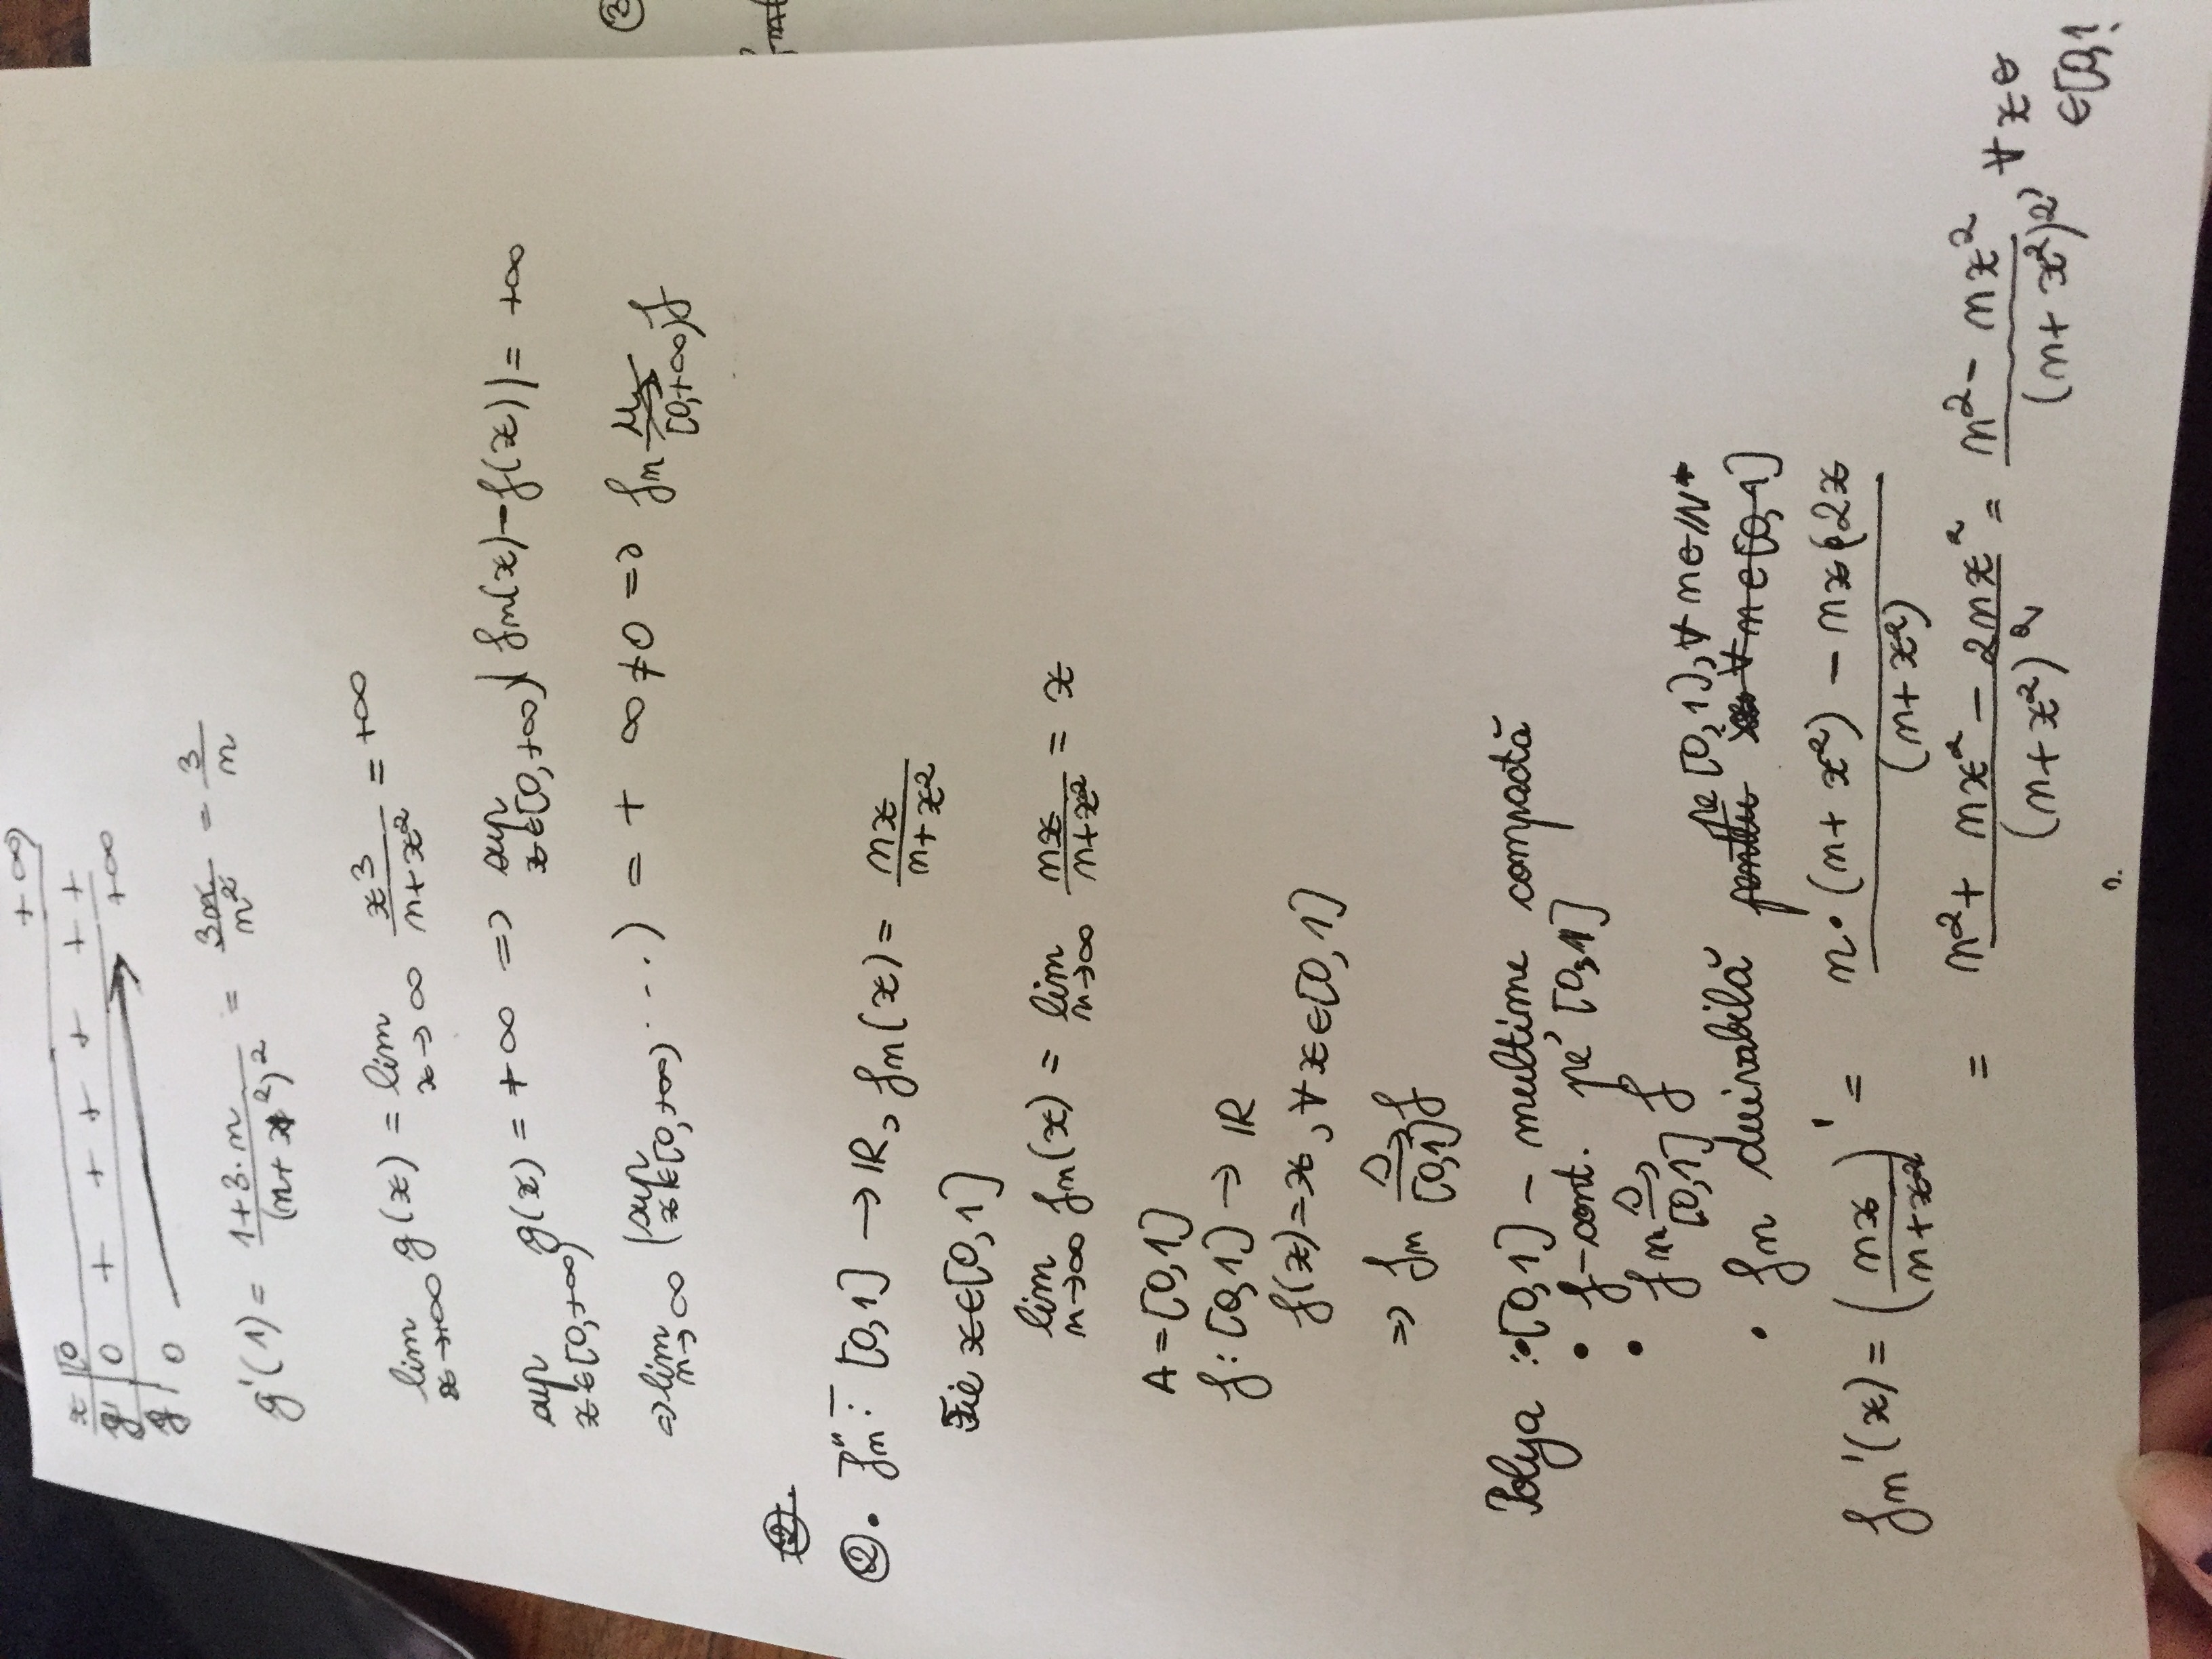 x | [0 +∞)
g' | 0 + + + + + +
g | 0 +∞
g'(1) = (1+3·n)/(n+1²)² = 3n/n² = 3/n
lim x→+∞ g(x) = lim x→∞ x³/(n+x²) = +∞
sup x∈[0,+∞) g(x) = +∞ => sup x∈[0,+∞) |fn(x)-f(x)| = +∞
=> lim n→∞ (sup x∈[0,+∞) ...) = + ∞ ≠ 0 => fn u↛ [0,+∞) f
②.
②. fn : [0,1] → IR, fn(x) = nx/(n+x²)
Fie x∈[0,1]
lim n→∞ fn(x) = lim n→∞ nx/(n+x²) = x
A = [0,1]
f : [0,1] → IR
f(x) = x, ∀ x∈[0,1]
=> fn s→ [0,1] f
Polya : •[0,1] - multime compactă
• f-cont. pe [0,1]
• fn s→ [0,1] f
pe [0,1], ∀ n∈IN*
• fn derivabilă pentru ∀ n∈[0,1]
fn'(x) = (nx/(n+x²))' = (n·(n+x²) - nx·2x)/(n+x²)
= (n² + nx² - 2nx²)/(n+x²)² = (n² - nx²)/(n+x²)², ∀ x∈
∈[0,1
③